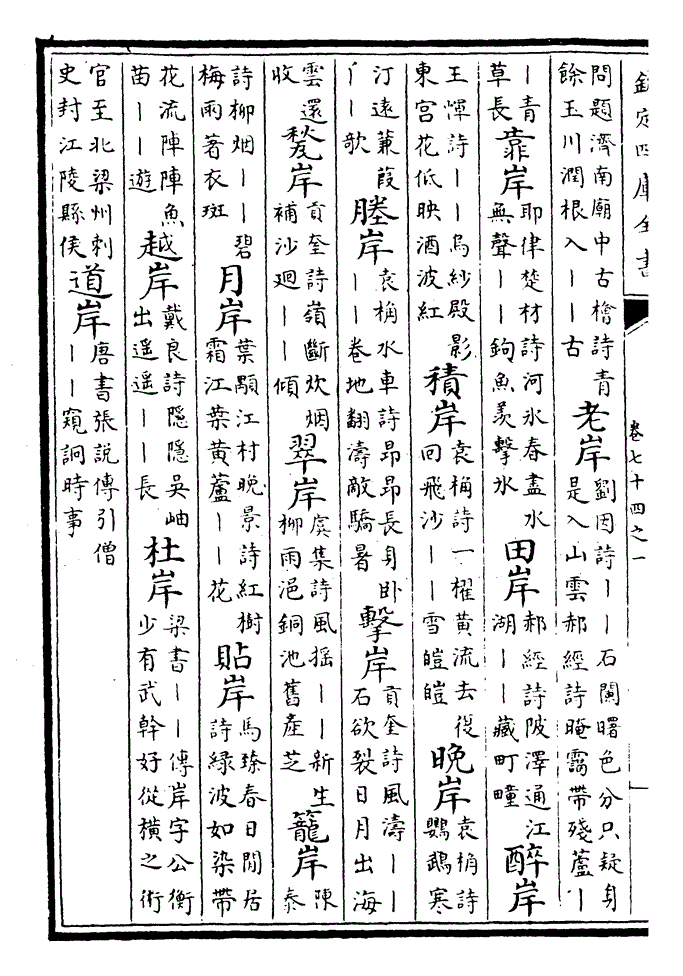 欽定四庫全書
卷七十四之一
問題濟南廟中古檜詩青餘玉川潤根入丨丨古老岸劉因詩丨丨石闌曙色分只疑身是入山雲郝經詩晻靄帶殘蘆丨
丨青草長靠岸耶律楚材詩河氷春盡水無聲丨丨鉤魚羨擊氷田岸郝經詩陂澤通江湖丨丨藏町疃醉岸
王惲詩丨丨烏紗殿影東宫花低映酒波紅積岸袁桷詩一櫂黄流去復回飛沙丨丨雪皚皚晚岸袁桷詩鸚鵡寒
汀遠蒹葭丨丨歌塍岸袁桷水車詩昂昂長身卧丨丨卷地翻濤敵驕暑擊岸貢奎詩風濤丨丨石欲裂日月出海
雲還收甃岸貢奎詩嶺斷炊烟補沙廻丨丨傾翠岸虞集詩風揺丨丨新生柳雨浥銅池舊產芝籠岸陳泰
詩柳烟丨丨碧梅雨著衣斑月岸葉顒江村晚景詩紅樹霜江葉黄蘆丨丨花貼岸馬臻春日閒居詩綠波如染帶
花流陣陣魚苗丨丨遊越岸戴良詩隠隠吳岫出遥遥丨丨長杜岸梁書丨丨傳岸字公衡少有武幹好從横之術
官至北梁州刺史封江陵縣侯道岸唐書張說傳引僧丨丨窺詗時事